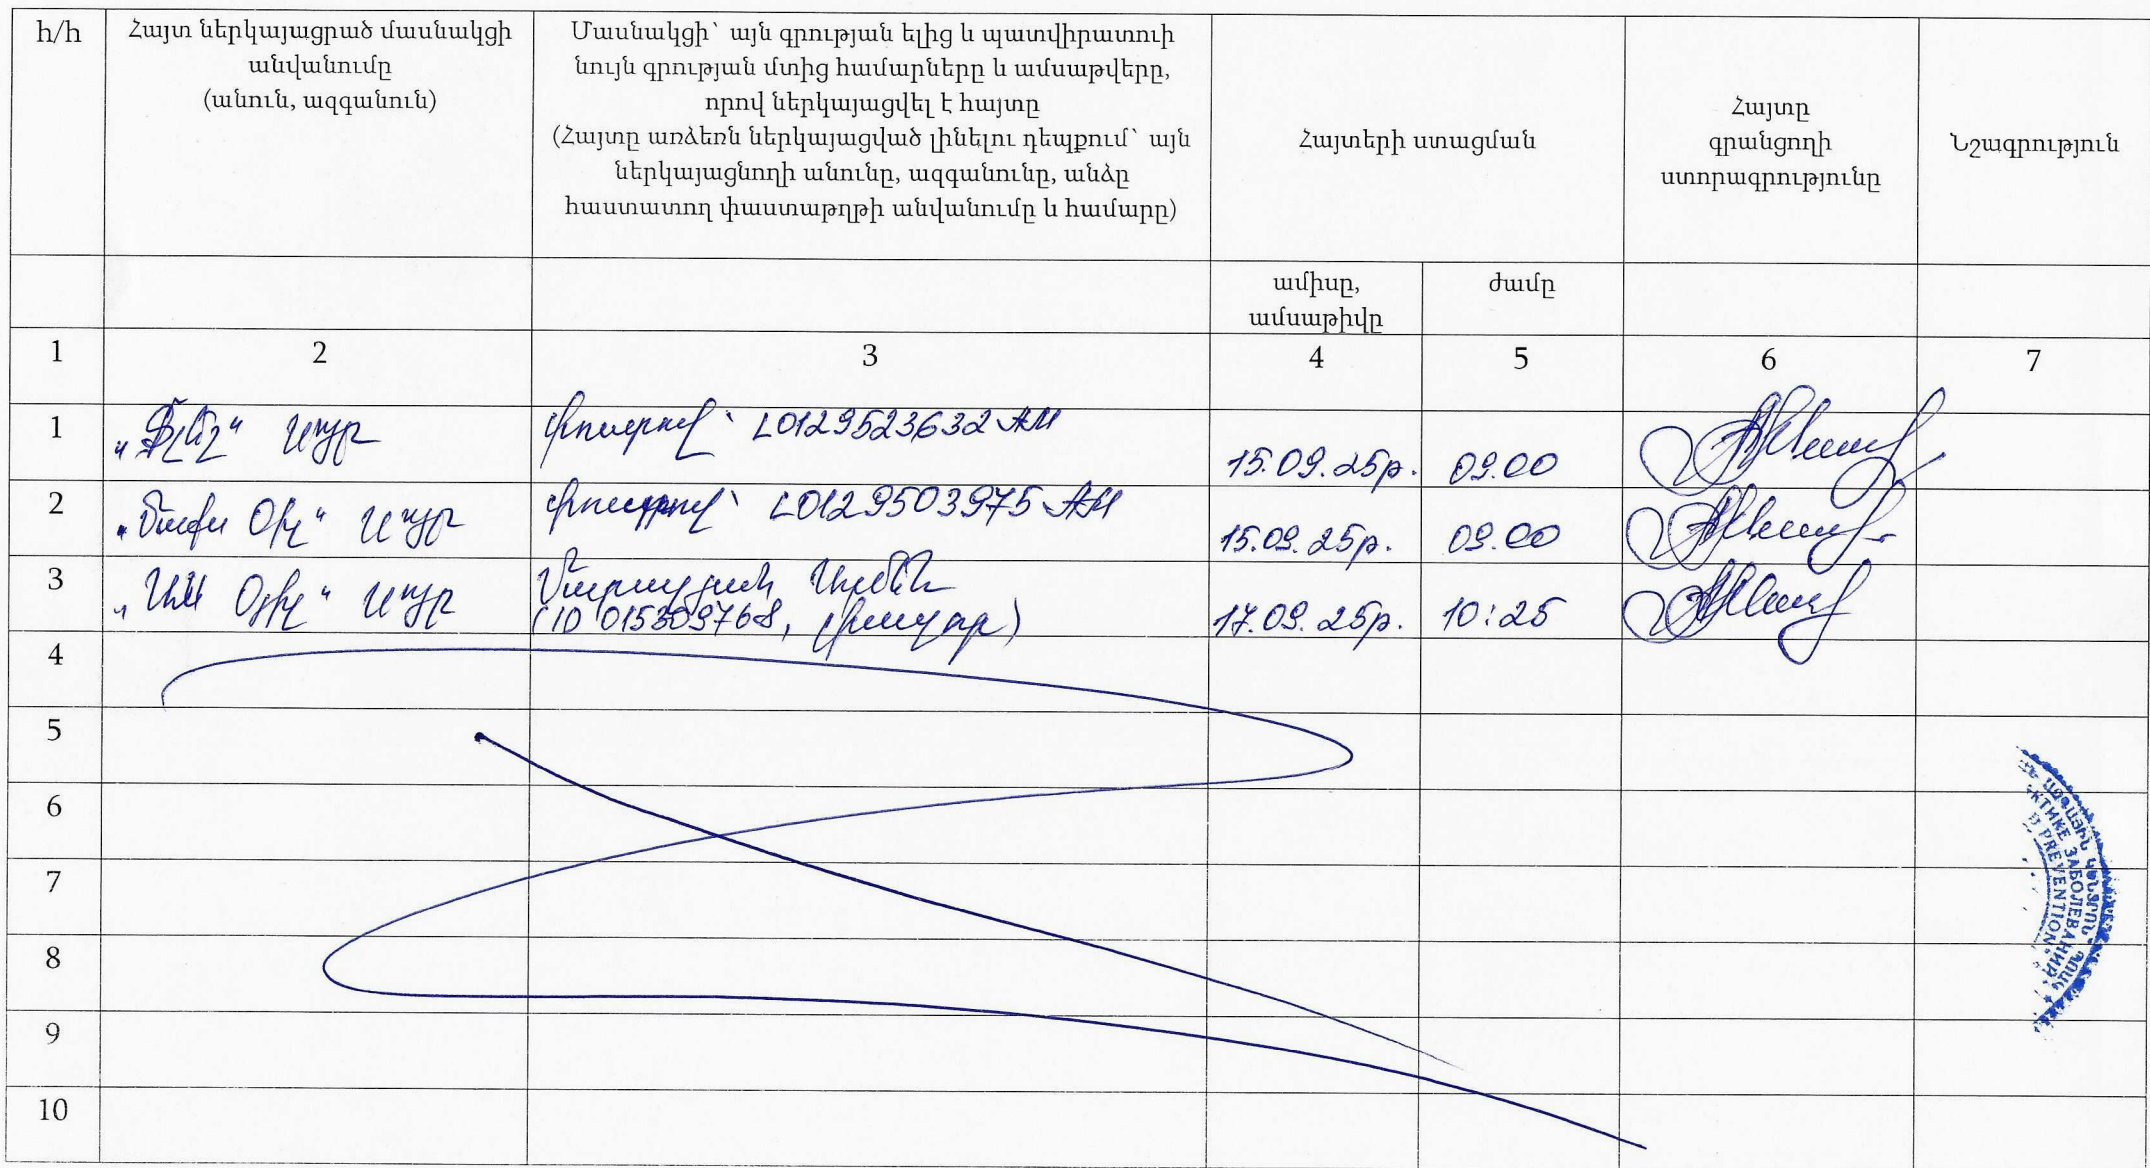 հ/հ
Հայտ ներկայացրած մասնակցի
անվանումը
(անուն, ազգանուն)
Մասնակցի՝ այն գրության ելից և պատվիրատուի
նույն գրության մտից համարները և ամսաթվերը,
որով ներկայացվել է հայտը
(Հայտը առձեռն ներկայացված լինելու դեպքում՝ այն
ներկայացնողի անունը, ազգանունը, անձը
հաստատող փաստաթղթի անվանումը և համարը)
Հայտերի ստացման
Հայտը
գրանցողի
ստորագրությունը
Նշագրություն
ամիսը,
ամսաթիվը
ժամը
1 2 3 4 5 6 7
1 „Ֆլեշ" ՍՊԸ փոստով՝ LO129523632AM 15.09.25թ. 09.00
2 „Մաքս Օիլ" ՍՊԸ փոստով՝ LO129503975AM 15.09.25թ. 09.00
3 Օյիլ" ՍՊԸ
(ID 015309768, 17.09.25թ. 10:25
4
5
6
7
8
9
10
PREVENTION